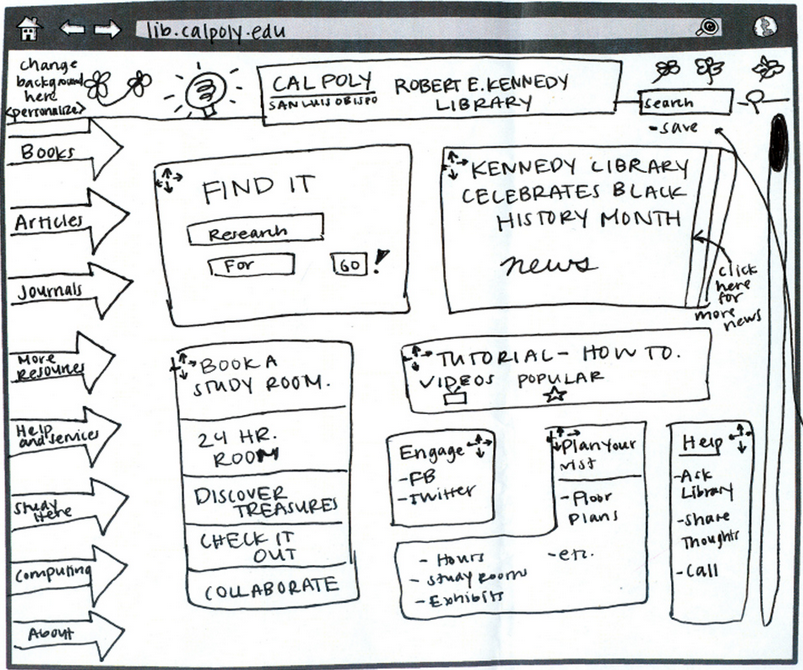 lib.calpoly.edu
change
background
here
<personalize>
CAL POLY
SAN LUIS OBISPO
ROBERT E. KENNEDY
LIBRARY
search
-save
Books
Articles
Journals
More
Resources
Help
and services
Study
Here
Computing
About
FIND IT
Research
For
GO!
KENNEDY LIBRARY
CELEBRATES BLACK
HISTORY MONTH
news
click
here
for
more
news
BOOK A
STUDY ROOM.
24 HR.
ROOM
DISCOVER
TREASURES
CHECK IT
OUT
COLLABORATE
TUTORIAL- HOW TO.
VIDEOS POPULAR
Engage
-FB
-Twitter
Plan your
vist
-Floor
Plans
-etc.
- Hours
- Study Room
- Exhibits
Help
-Ask
Library
-Share
Thoughts
-Call